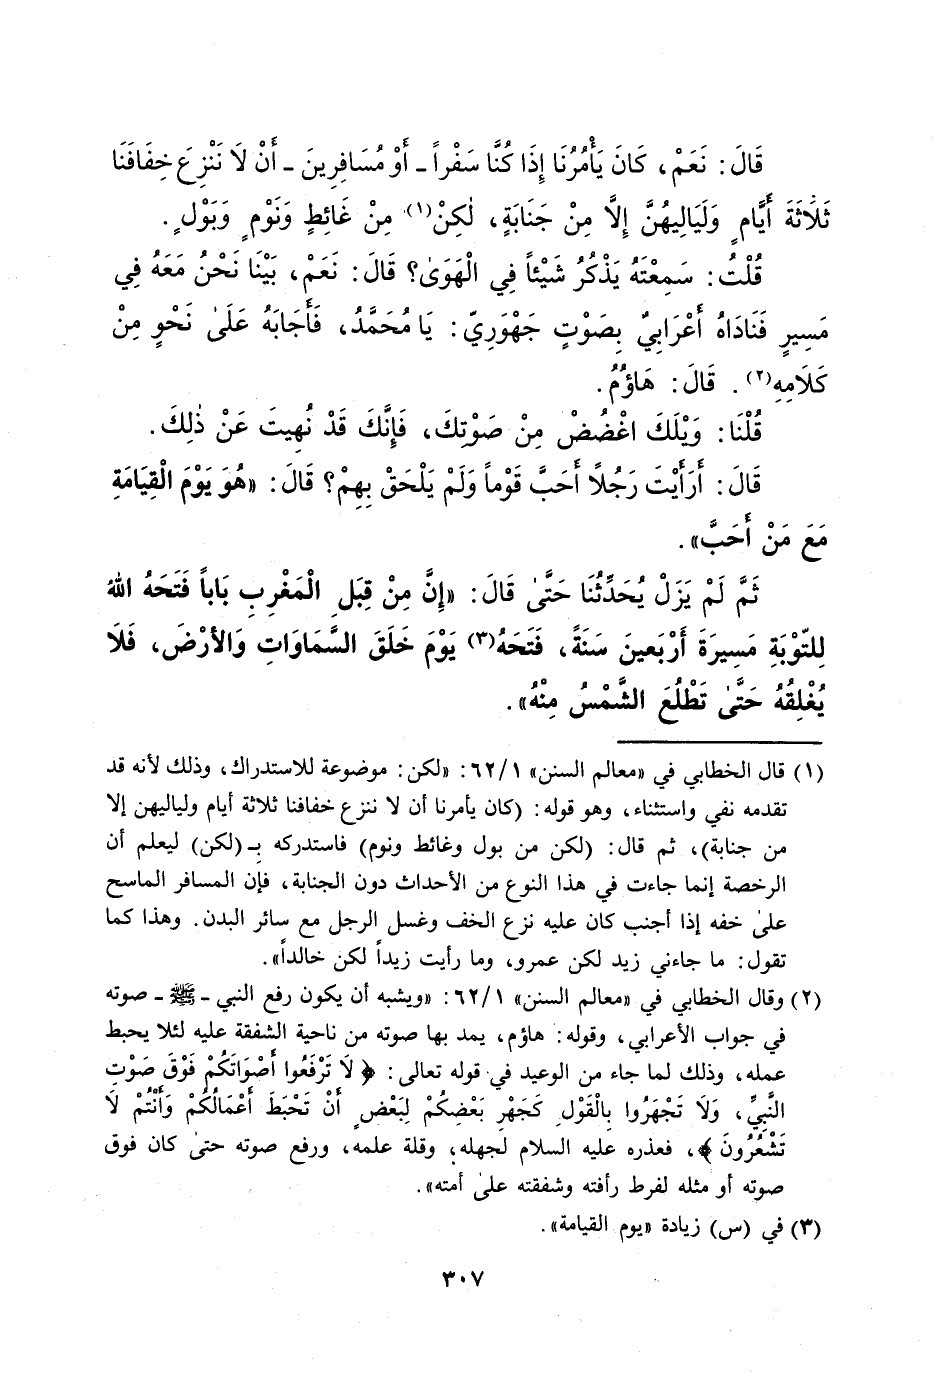 قَالَ: نَعَمْ، كَانَ يَأْمُرُنَا إِذَا كُنَّا سَفْراً ـ أَوْ مُسَافِرِينَ ـ أَنْ لَا نَنْزِعَ خِفَافَنَا
ثَلَاثَةَ أَيَّامٍ وَلَيَالِيهُنَّ إِلَّا مِنْ جَنَابَةٍ، لٰكِنْ(١) مِنْ غَائِطٍ وَنَوْمٍ وَبَوْلٍ.
قُلْتُ: سَمِعْتَهُ يَذْكُرُ شَيْئاً فِي الْهَوَىٰ؟ قَالَ: نَعَمْ، بَيْنَا نَحْنُ مَعَهُ فِي
مَسِيرٍ فَنَادَاهُ أَعْرَابِيٌّ بِصَوْتٍ جَهْوَرِيٍّ: يَا مُحَمَّدُ، فَأَجَابَهُ عَلَىٰ نَحْوٍ مِنْ
كَلَامِهِ(٢). قَالَ: هَاؤُمُ.
قُلْنَا: وَيْلَكَ اغْضُضْ مِنْ صَوْتِكَ، فَإِنَّكَ قَدْ نُهِيتَ عَنْ ذٰلِكَ.
قَالَ: أَرَأَيْتَ رَجُلًا أَحَبَّ قَوْماً وَلَمْ يَلْحَقْ بِهِمْ؟ قَالَ: «هُوَ يَوْمَ الْقِيَامَةِ
مَعَ مَنْ أَحَبَّ».
ثَمَّ لَمْ يَزَلْ يُحَدِّثُنَا حَتَّىٰ قَالَ: «إِنَّ مِنْ قِبَلِ الْمَغْرِبِ بَاباً فَتَحَهُ اللهُ
لِلتَّوْبَةِ مَسِيرَةَ أَرْبَعينَ سَنَةً، فَتَحَهُ(٣) يَوْمَ خَلَقَ السَّمَاوَاتِ وَالأَرْضَ، فَلَا
يُغْلِقُهُ حَتَّىٰ تَطْلُعَ الشَّمْسُ مِنْهُ».
(١) قال الخطابي في «معالم السنن» ٦٢/١: «لكن: موضوعة للاستدراك، وذلك لأنه قد
تقدمه نفي واستثناء، وهو قوله: (كان يأمرنا أن لا ننزع خفافنا ثلاثة أيام ولياليهن إلا
من جنابة)، ثم قال: (لكن من بول وغائط ونوم) فاستدركه بـ(لكن) ليعلم أن
الرخصة إنما جاءت في هذا النوع من الأحداث دون الجنابة، فإن المسافر الماسح
علىٰ خفه إذا أجنب كان عليه نزع الخف وغسل الرجل مع سائر البدن. وهذا كما
تقول: ما جاءني زيد لكن عمرو، وما رأيت زيداً لكن خالداً».
(٢) وقال الخطابي في «معالم السنن» ٦٢/١: «ويشبه أن يكون رفع النبي ـ ﷺ ـ صوته
في جواب الأعرابي، وقوله: هاؤم، يمد بها صوته من ناحية الشفقة عليه لئلا يحبط
عمله، وذلك لما جاء من الوعيد في قوله تعالى: ﴿لَا تَرْفَعُوا أَصْوَاتَكُمْ فَوْقَ صَوْتِ
النَّبِيِّ، وَلَا تَجْهَرُوا بِالْقَوْلِ كَجَهْرِ بَعْضِكُمْ لِبَعْضٍ أَنْ تَحْبَطَ أَعْمَالُكُمْ وَأَنْتُمْ لَا
تَشْعُرُونَ﴾، فعذره عليه السلام لجهله، وقلة علمه، ورفع صوته حتىٰ كان فوق
صوته أو مثله لفرط رأفته وشفقته علىٰ أمته».
(٣) في (س) زيادة «يوم القيامة».
٣٠٧